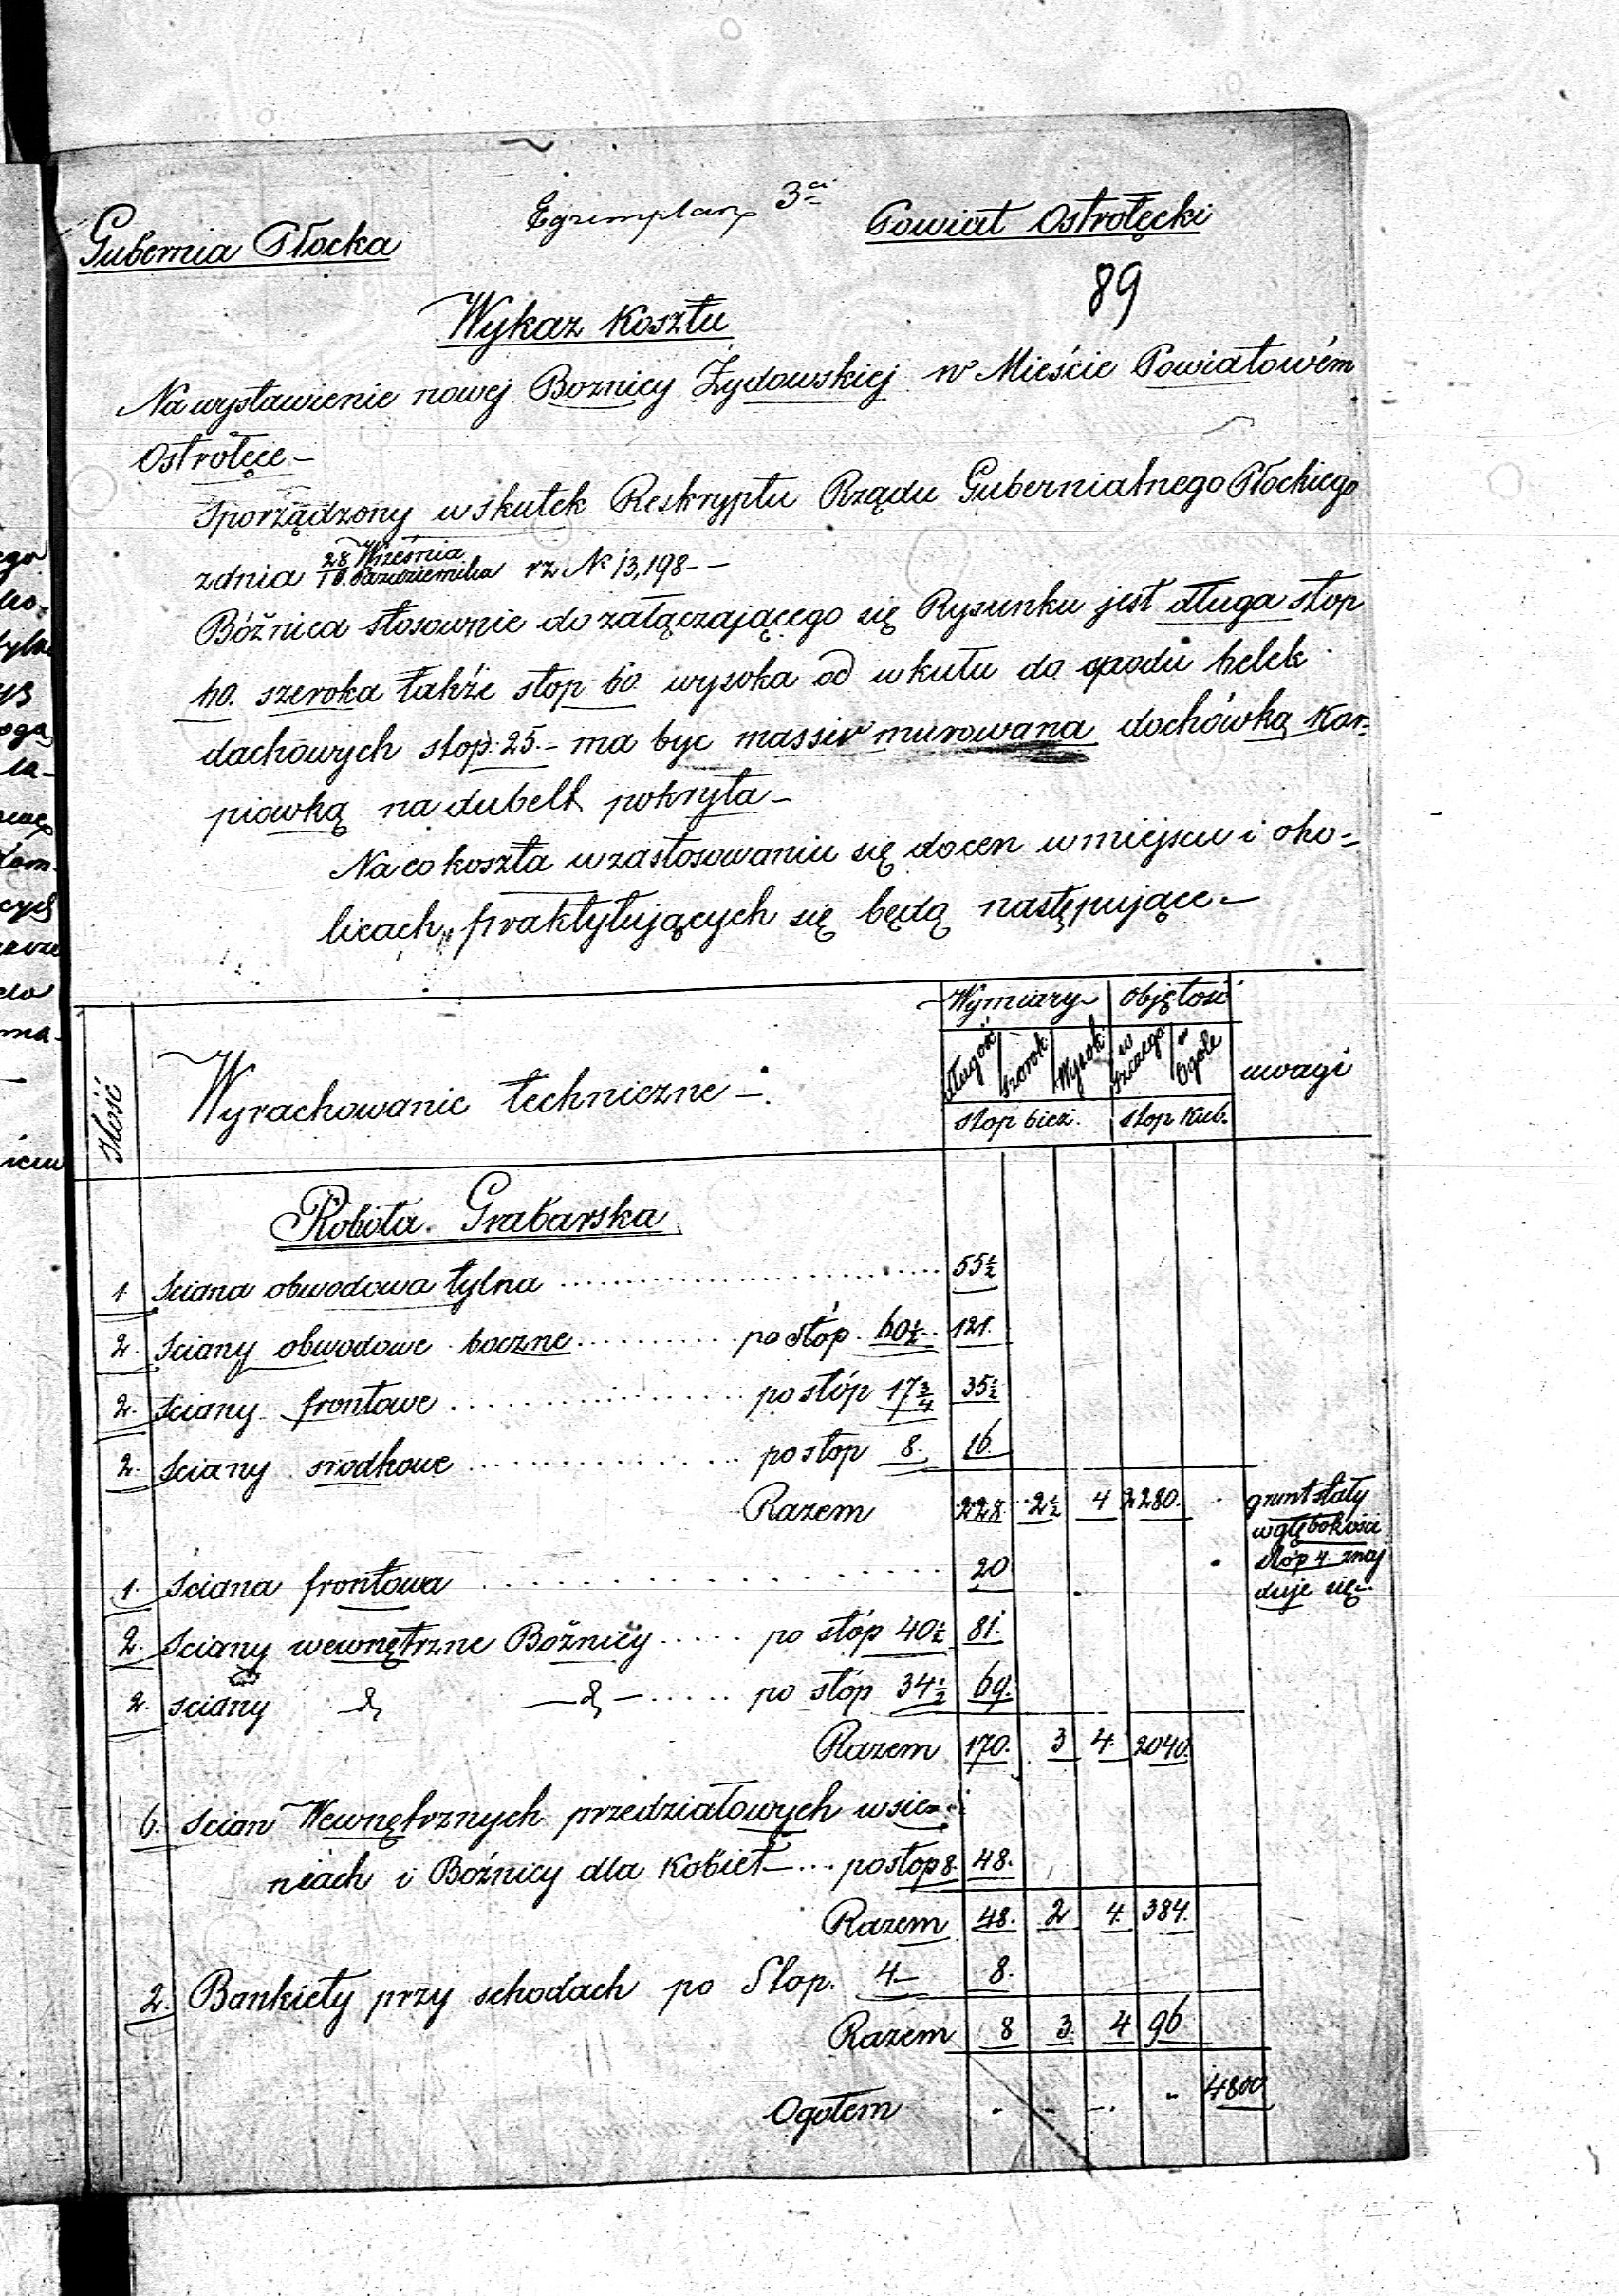 Egzemplarz 3ci
Gubernia Płocka
Powiat Ostrołęcki
89
Wykaz Kosztu
Na wystawienie nowej Boznicy Żydowskiej w Mieście Powiatowém
Ostrołęce –
Sporządzony w skutek Reskryptu Rządu Gubernialnego Płockiego
z dnia 28 Września / 10 Października rz № 13,198 – –
Bóżnica stosownie do załączającego się Rysunku jest długa stop
60. szeroka także stop 60 wysoka od wkułu do spodu belek
dachowych stop. 25. – ma byc massiv murowana dachówką Kar=
piowką na dubelt pokryta –
Na co koszta w zastosowaniu się do cen w miejscu i oko=
licach praktykujących się będą następujące –
Wymiary – Objętość
Ilość Wyrachowanie techniczne – długość szerok. Wysok. w szczegó w Ogóle uwagi
stop bieź. stop Kub.
Robota Grabarska
1 Sciana obwodowa tylna 55½
2. Sciany obwodowe boczne po stóp 60½ 121.
2. Sciany frontowe po stóp 17¾ 35½
2. Sciany srodkowe po stop 8. 16.
Razem 228. 2½ 4 2280. grunt stały
w głębokości
stóp 4. znaj
duje się –
1. Sciana frontowa 20
2. Sciany wewnętrzne Bożnicy po stóp 40½ 81.
2. sciany d – d – po stóp 34½ 69.
Razem 170. 3 4. 2040.
6. Scian Wewnętrznych przedziałowych w sie=
niach i Bożnicy dla Kobiet – po stop 8. 48.
Razem 48. 2 4. 384.
2. Bankiety przy schodach po Stop. 4 – 8.
Razem 8 3. 4 96
Ogołem 4800